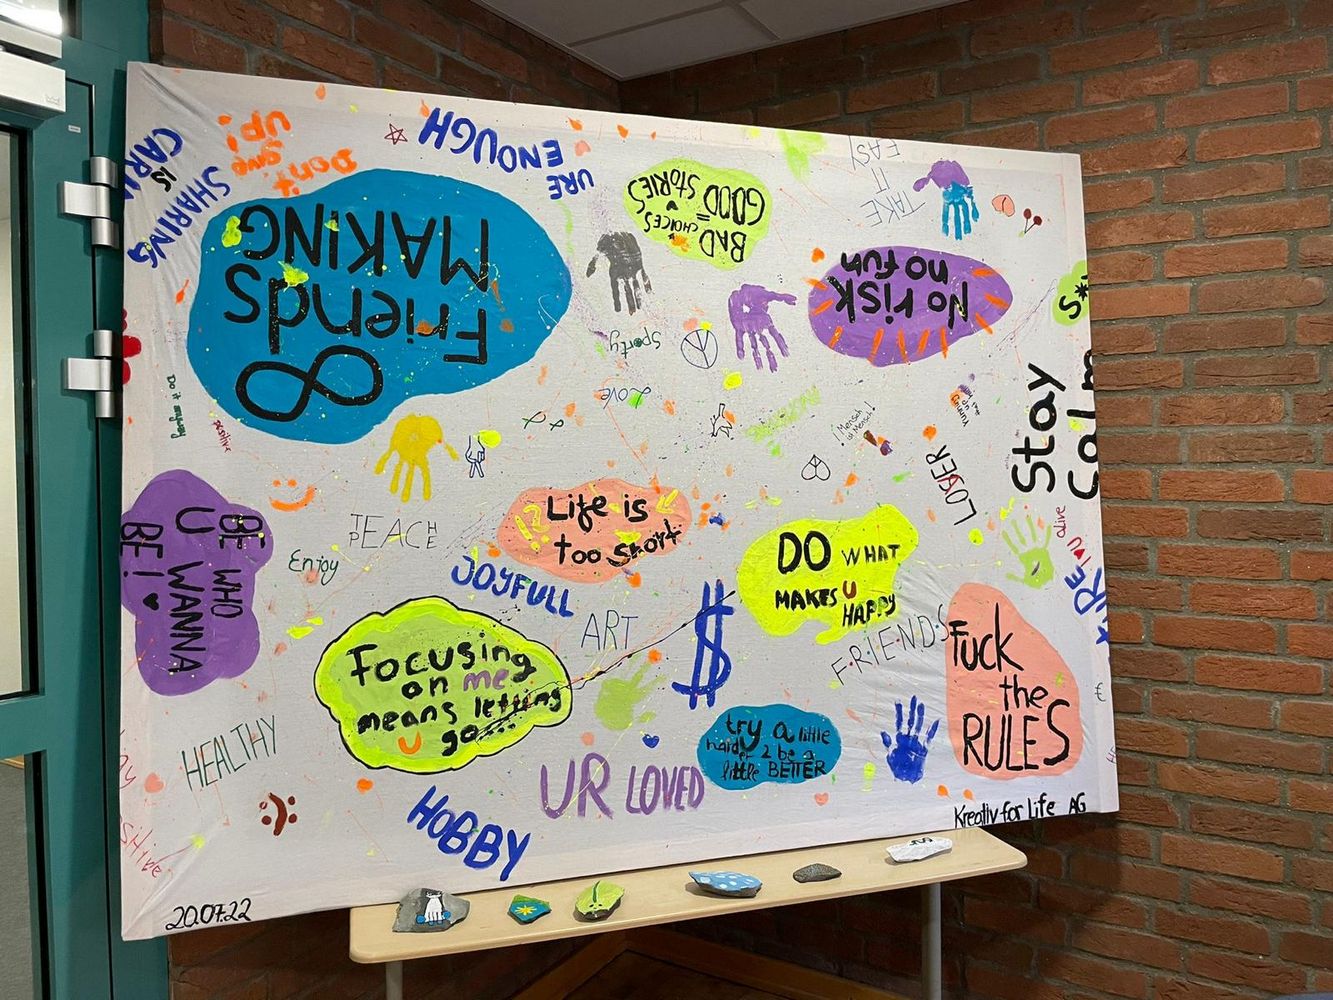 SHARING
IS
Don't
Give
UP!
URE
ENOUGH
MAKING
Friends
BAD CHOICES
=
GOOD STORIES
TAKE
IT
EASY
No risk
no fun
Sporty
Love
! Mensch
ist Mensch!
Stay
LOVER
BE WHO
U WANNA
BE!
TEACH
Enjoy
Life is
too short
!?
JOYFULL
ART
$
DO WHAT
MAKES U
HAPPY
F·R·I·E·N·D·S
Focusing
on me
means letting
U go...
Fuck
the
RULES
I ♥ U
alive
€
HEALTHY
try a little
harder 2 be a
little BETTER
UR LOVED
HOBBY
Kreativ for Life AG
20.07.22